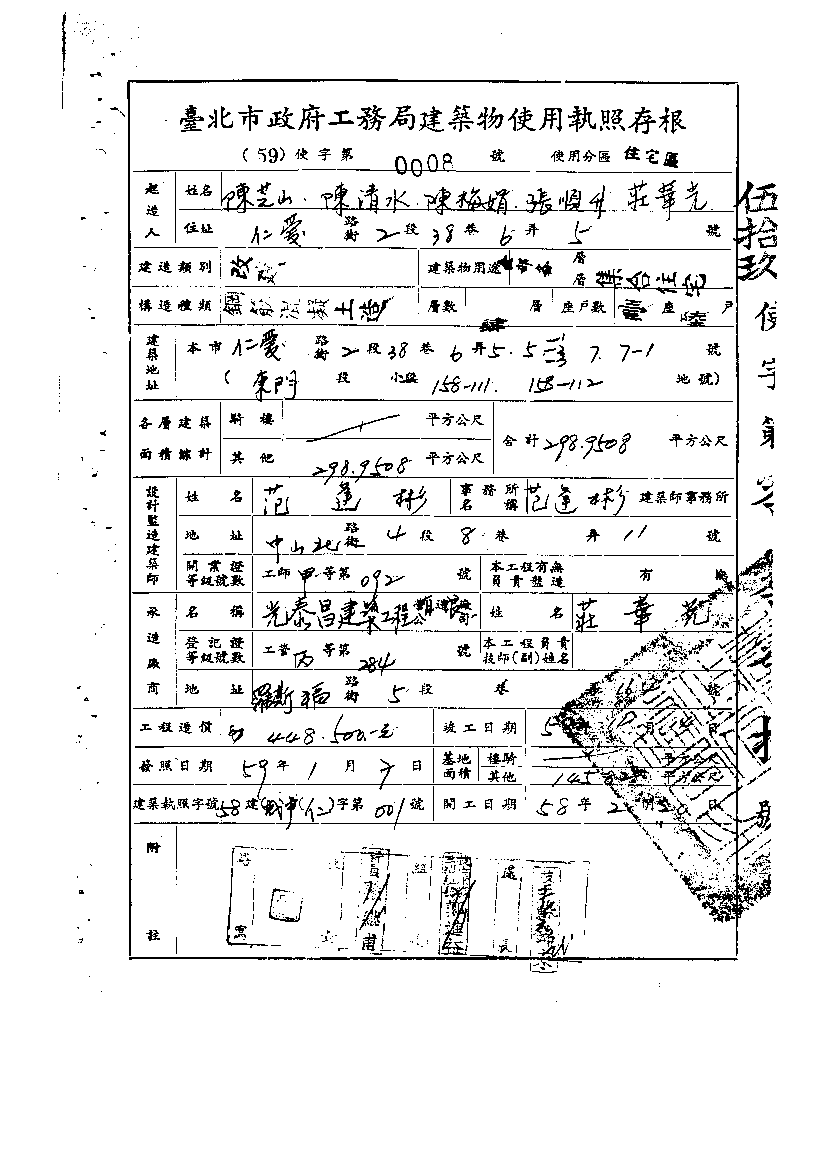 臺北市政府工務局建築物使用執照存根
(59)使字第 0008 號 使用分區 住宅區
起造人 姓名 陳芝山.陳清水.陳梅娟.張順升 莊華光
住址 仁愛 路街 2 段 38 巷 6 弄 5 號
建造類別 改建 建築物用途 層層 集合住宅
構造種類 鋼筋混凝土造 層數 肆 層 座戶數 座 陸 戶
建築地址 本市 仁愛 路街 2 段 38 巷 6 弄 5. 5 7. 7-1 號
(東門 段 小段 158-111. 158-112 地號)
各層建築面積總計 騎樓 平方公尺 合計 298.9508 平方公尺
其他 298.9508 平方公尺
設計監造建築師 姓名 范蓬彬 事務所名稱 范蓬彬 建築師事務所
地址 中山北 路街 4 段 8 巷 弄 11 號
開業證等級號數 工師 甲 等第 092 號 本工程有無負責監造 有 無
承造廠商 名稱 光泰昌建築工程 姓名 莊華
登記證等級號數 工營 丙 等第 284 號 本工程負責技師(副)姓名
地址 羅斯福 路街 5 段 巷 號
工程造價 448.500.-元 竣工日期 5 月 日
發照日期 59 年 1 月 7 日 基地面積 騎樓 平方公尺
其他 145 平方公尺
建築執照字號 58 建( )(仁)字第 001 號 開工日期 58 年 2 月 20 日
附註
組
處
長
伍拾玖使字第
號